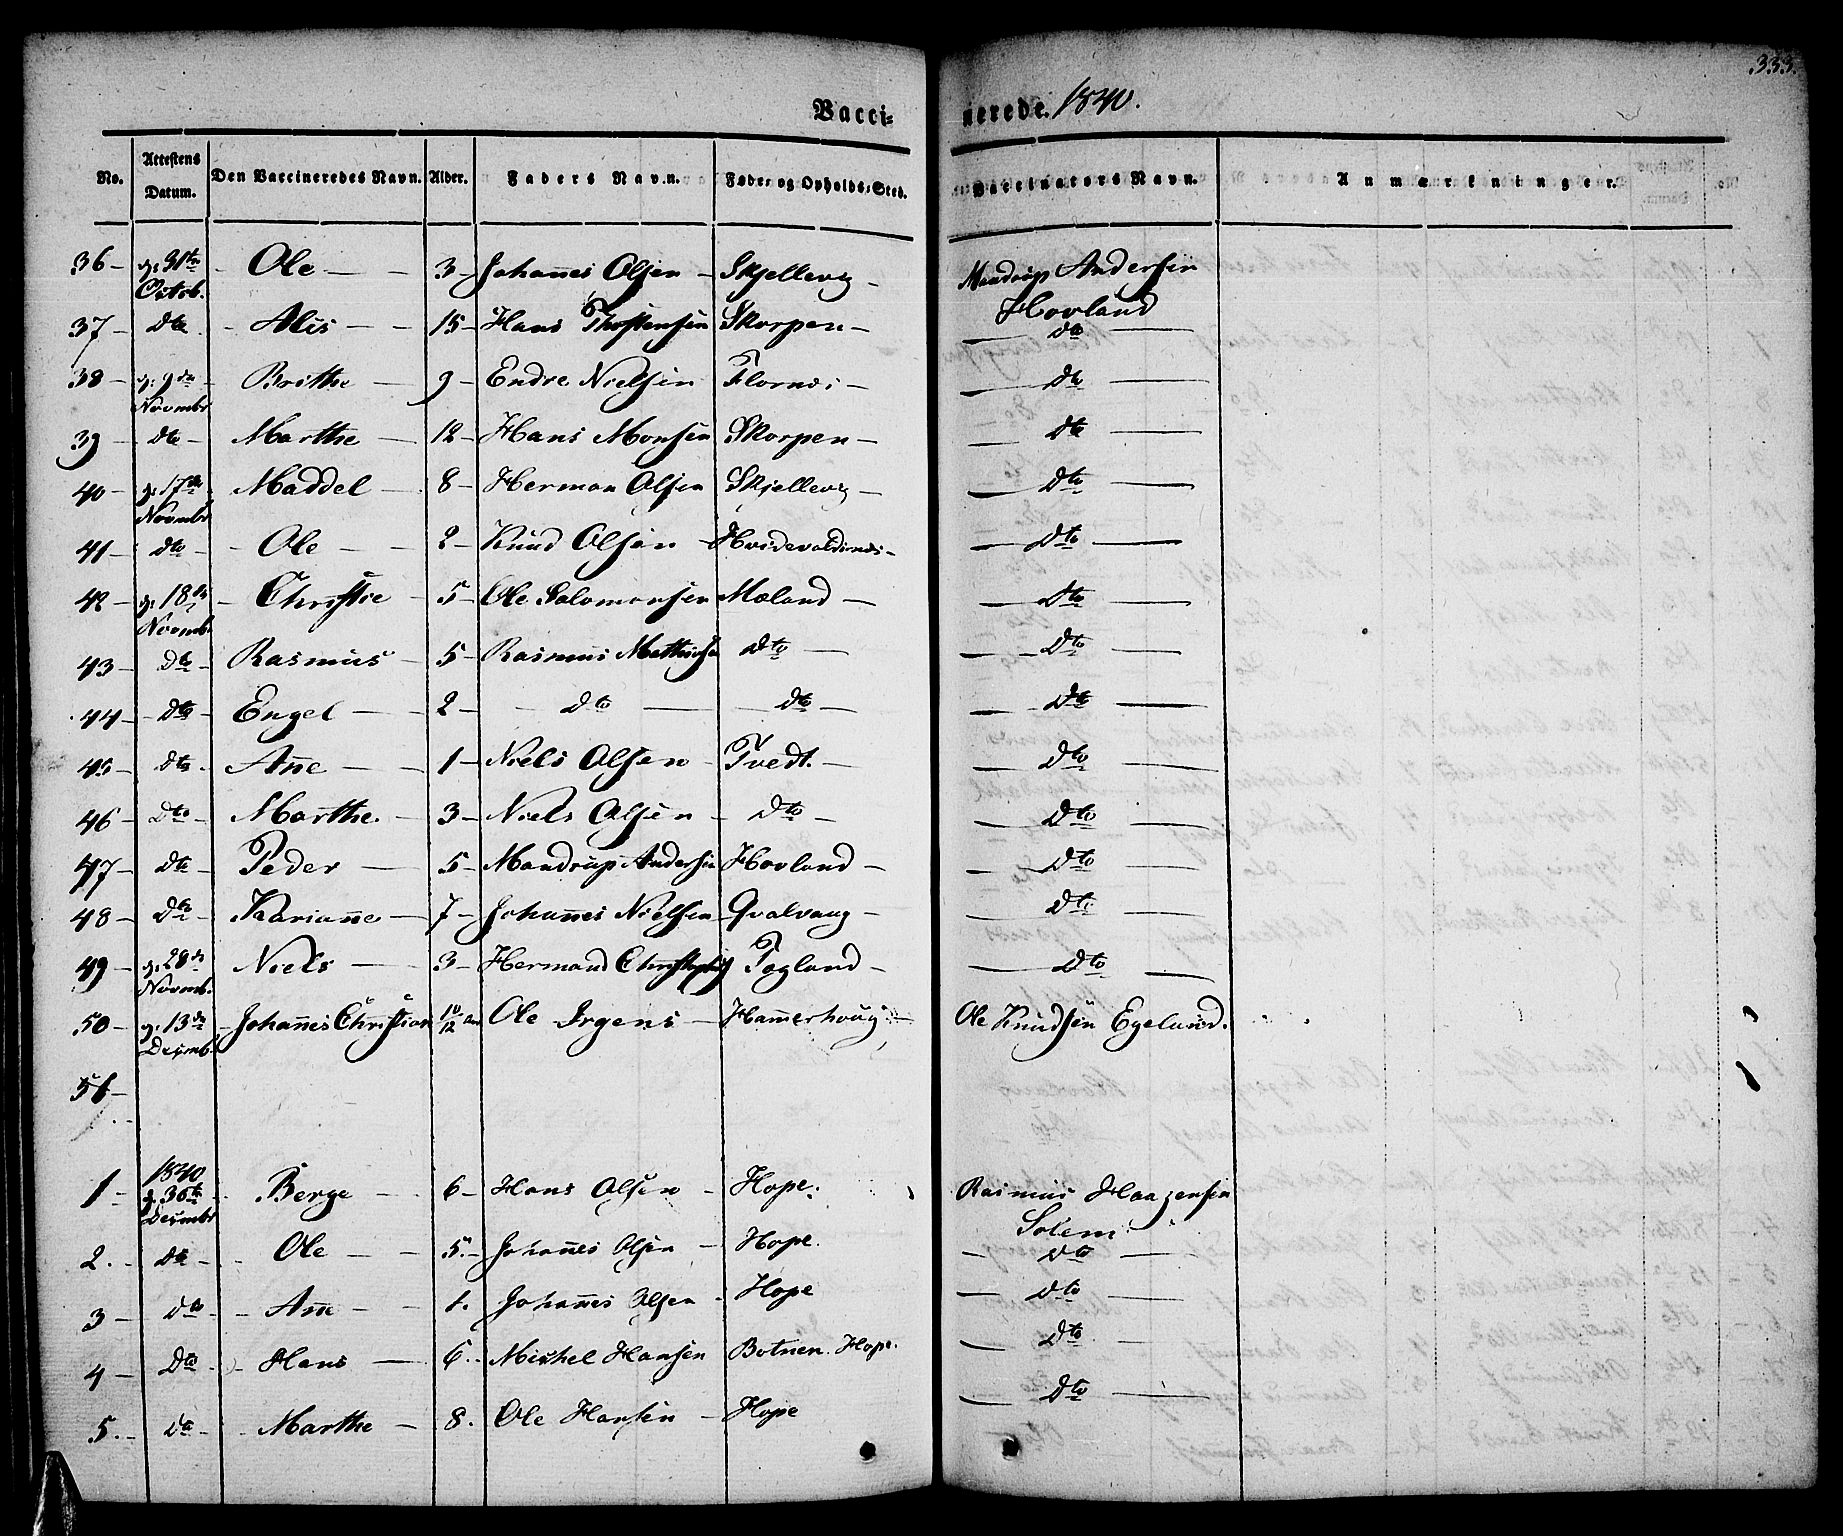 333.
Vaccinerede. 1840.
No. Attestens Datum. Den Vaccineredes Navn. Alder. Faders Navn. Føde- og Opholds-Sted. Vaccinators Navn. Anmærkninger.
36 - d: 31te Octob. - Ole - 3 - Johannes Olsen - Skjellevig - Mandrup Andersen Hovland
37 - dto - Alis - 15 - Hans Thostensen Skorpen - dto
38 - d: 9de Novmbr - Brithe - 9 - Endre Nielsen - Flornes - dto
39 - dto - Marthe - 12 - Hans Monsen Skorpen - dto
40 - d: 17de Novmbr Maddel - 8 - Herman Olsen Skjellevig - dto
41 - dto - Ole - 2 - Knud Olsen - dto
42 - d: 18de Novmb. - Christie - 5 - Ole Salomonsen Mæland - dto
43 - dto - Rasmus - 5 - Rasmus dto - dto
44 - dto - Engel - 2 - dto - dto - dto
45 - dto - Ane - 1 - Niels Olsen - Tvedt. - dto
46 - dto - Marthe. - 3 - Niels Olsen - dto - dto
47 - dto - Peder - 5 - Mandrup Andersen Hovland - dto
48 - dto - Karianne - 7 - Johannes Nielsen Qvalvaag - dto
49 - d: 28de Novmb. Niels - 3 - Hermand Fogland - dto
50 - d: 13de Desmb. - Johannes Christian 10/12 Aar Ole Irgens - Hammerhoug Ole Knudsen Egeland.
51 -
1 - 1840 d. 30te Desmbr - Berge - 6 - Hans Olsen - Hope. Rasmus Haagensen Solem
2. - dto - Ole - 5. - Johannes Olsen - Hope. - dto
3 - dto - Ane - 1. Johannes Olsen - Hope - dto
4 - dto - Hans - 6. Michel Hansen Botnen. Hope. - dto
5. - dto - Marthe - 8. Ole Hansen - Hope - dto